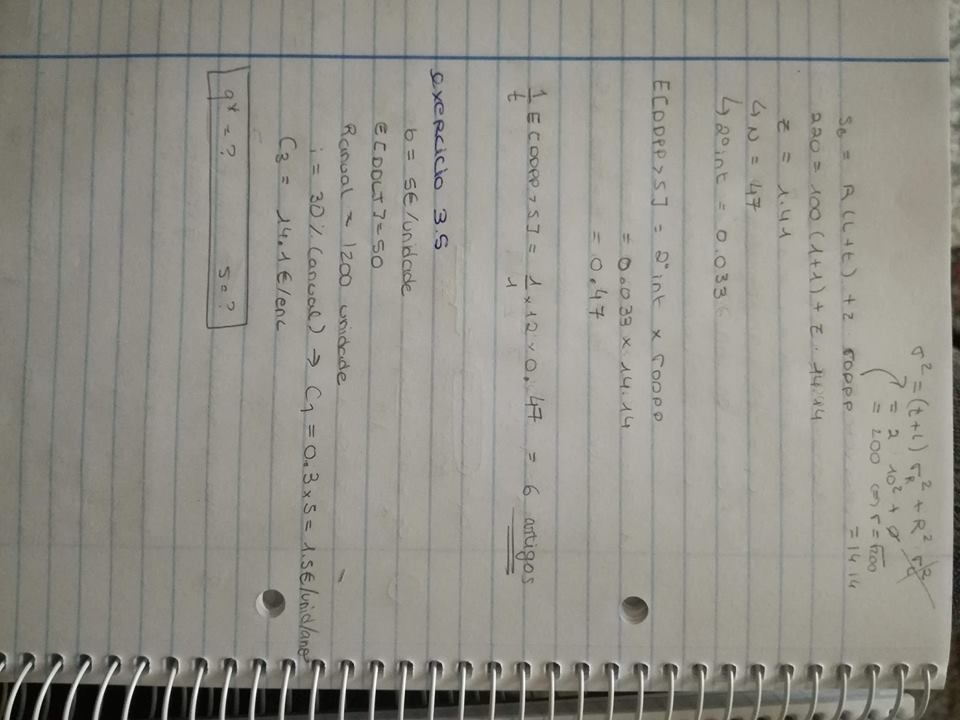 σ² = (t+l) σ_R² + R² σ_L²
= 2 10² + 0
= 200 (=) σ = √200
= 14.14
S_B = R(L+t) + z σDDPP
220 = 100 (1+1) + z · 14.14
z = 1.41
↳ N = 47
↳ 2º int = 0.0336
E[DDPP>S] = 2º int × σDDPP
= 0.033 × 14.14
= 0.47
1/t E[DDPP>S] = 1/1 × 12 × 0.47 = 6 artigos
exercicio 3.5
b = 5€/unidade
E[DDLT] = 50
Ranual = 1200 unidade
i = 30% (anual) → C₁ = 0.3 × 5 = 1.5€/unid/ano
C₃ = 14.1€/enc
q* = ? s = ?